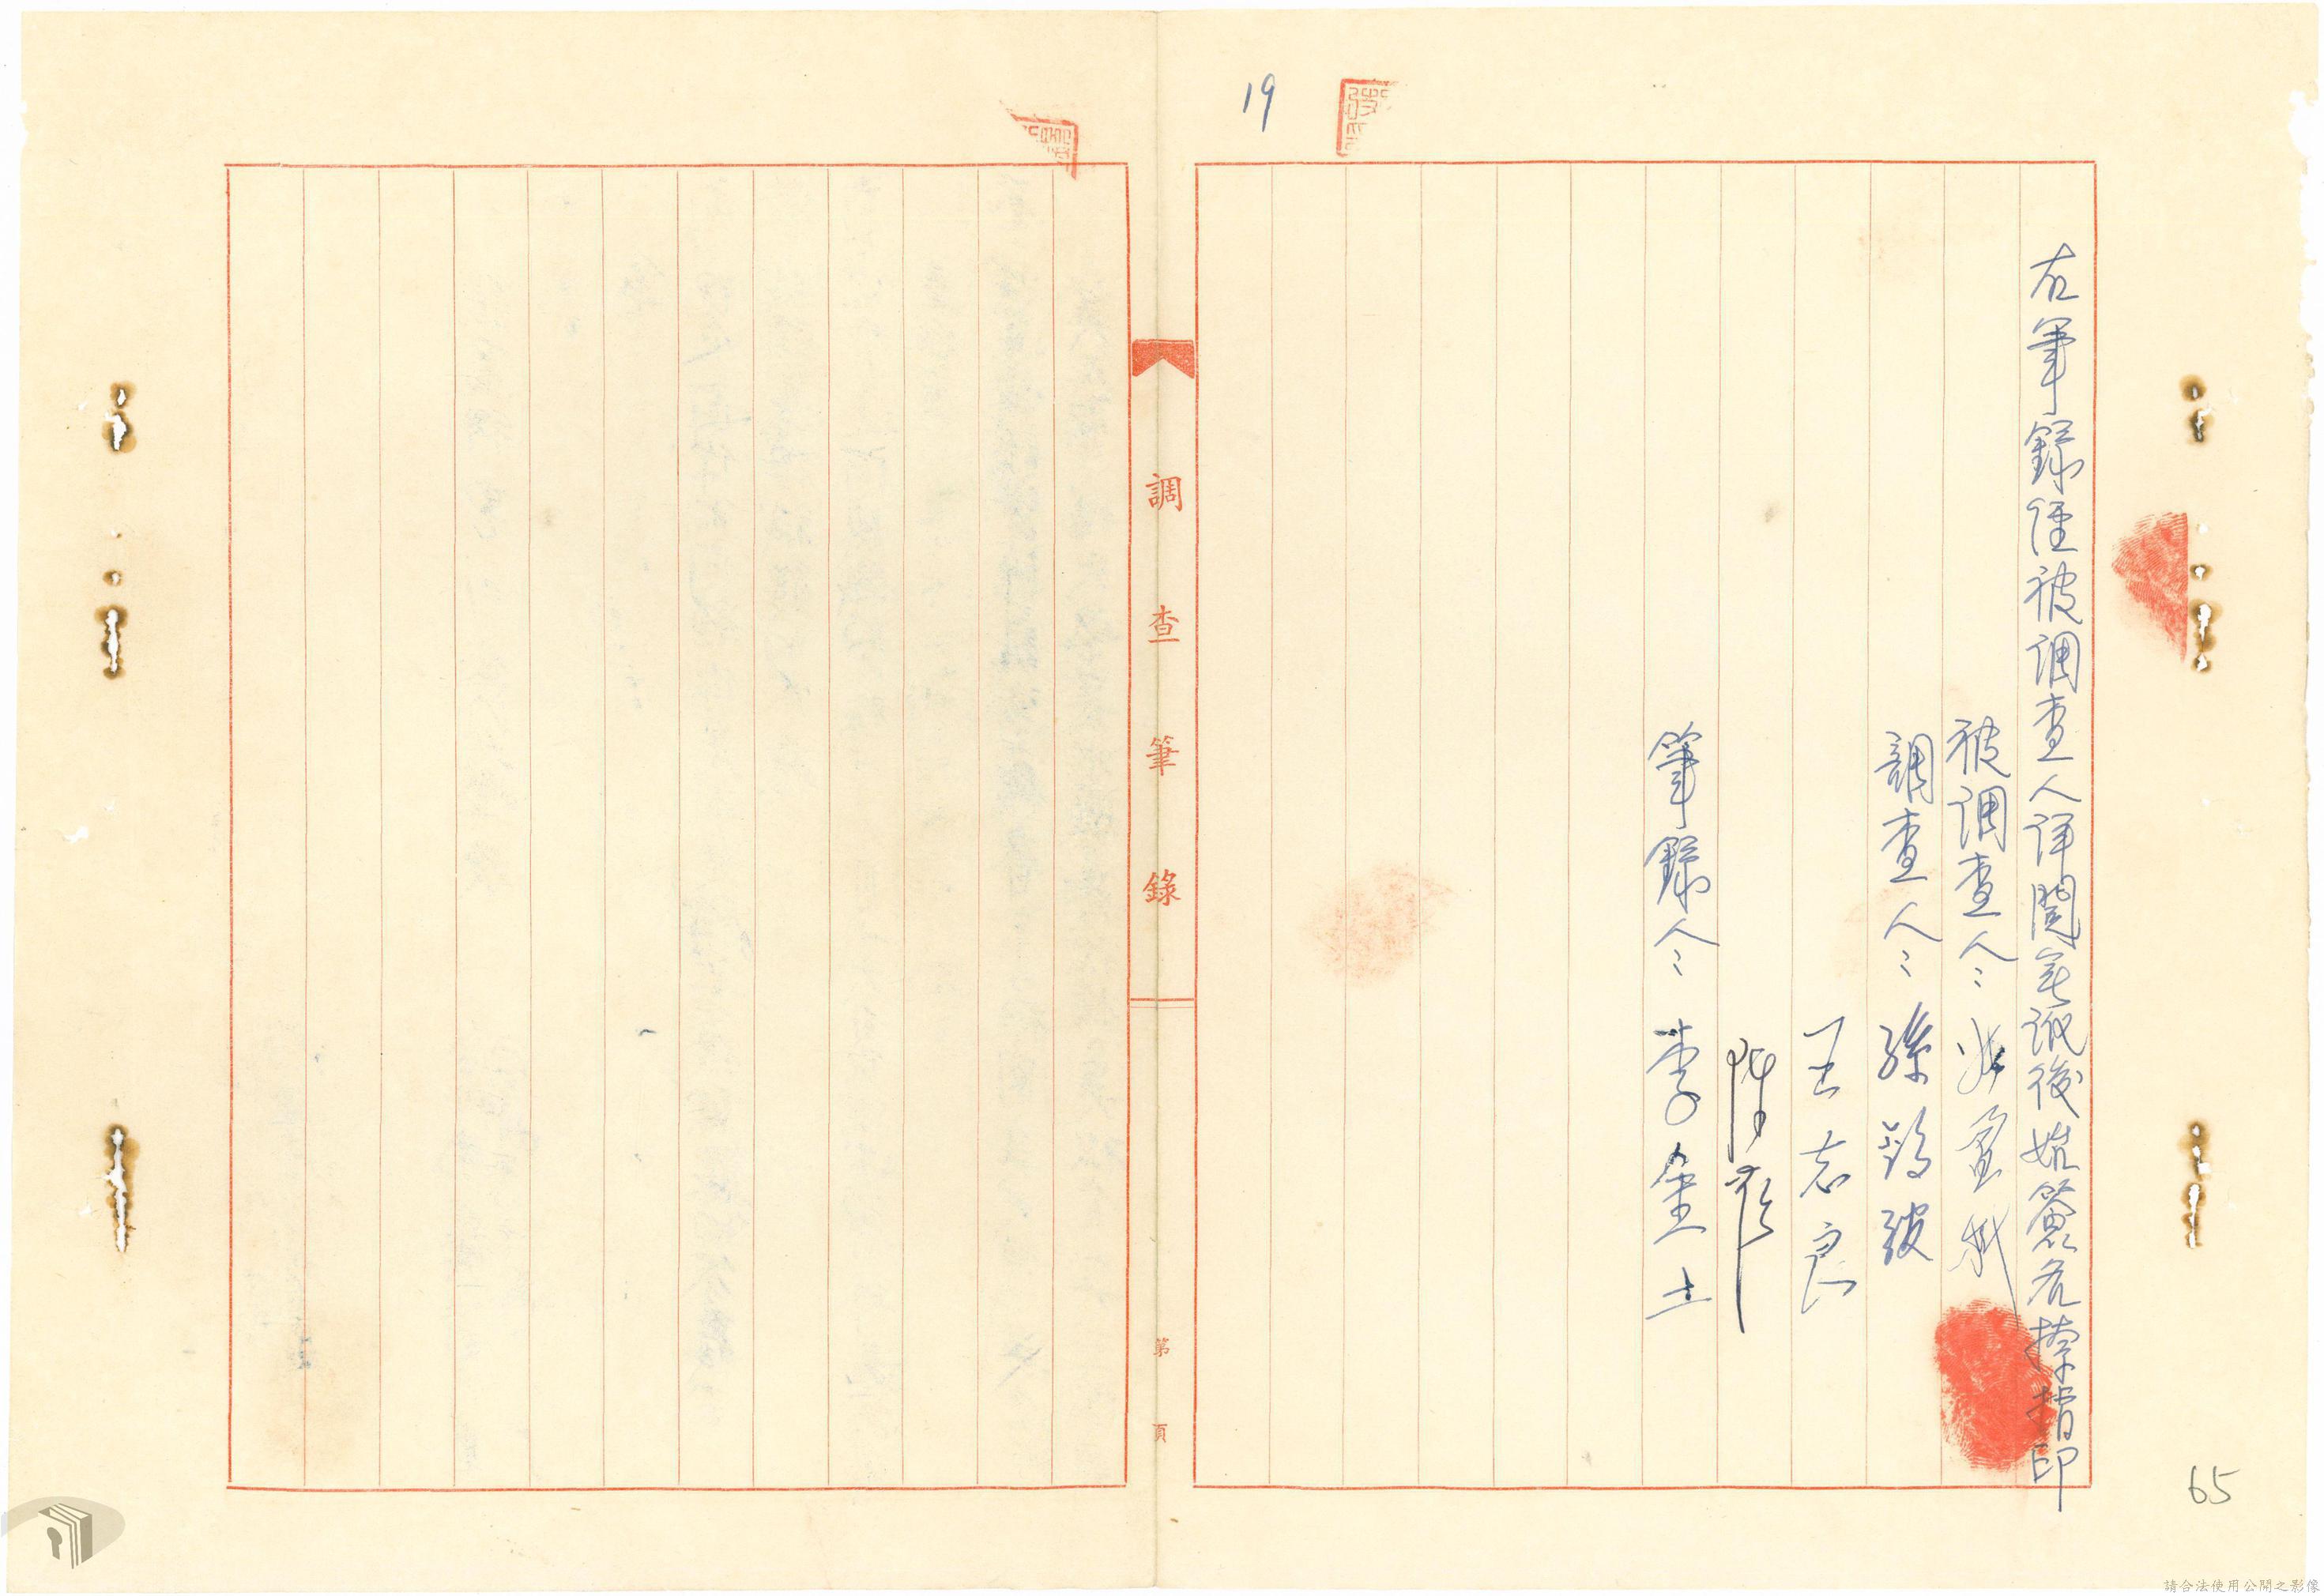 19
右筆錄經被調查人詳閱宅誠後始簽名捺指印
被調查人:
調查人:孫
王志良
陳
筆錄人:李金土
調查筆錄
第 頁
65
請合法使用公開之影像